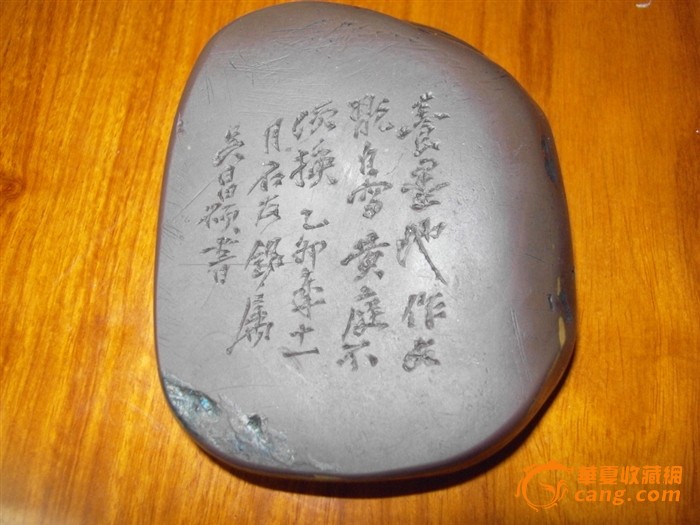 養墨池作文
玩自寫黃庭不
須換乙卯年十一
月石友銘属
吴昌碩書
華夏收藏網
cang.com